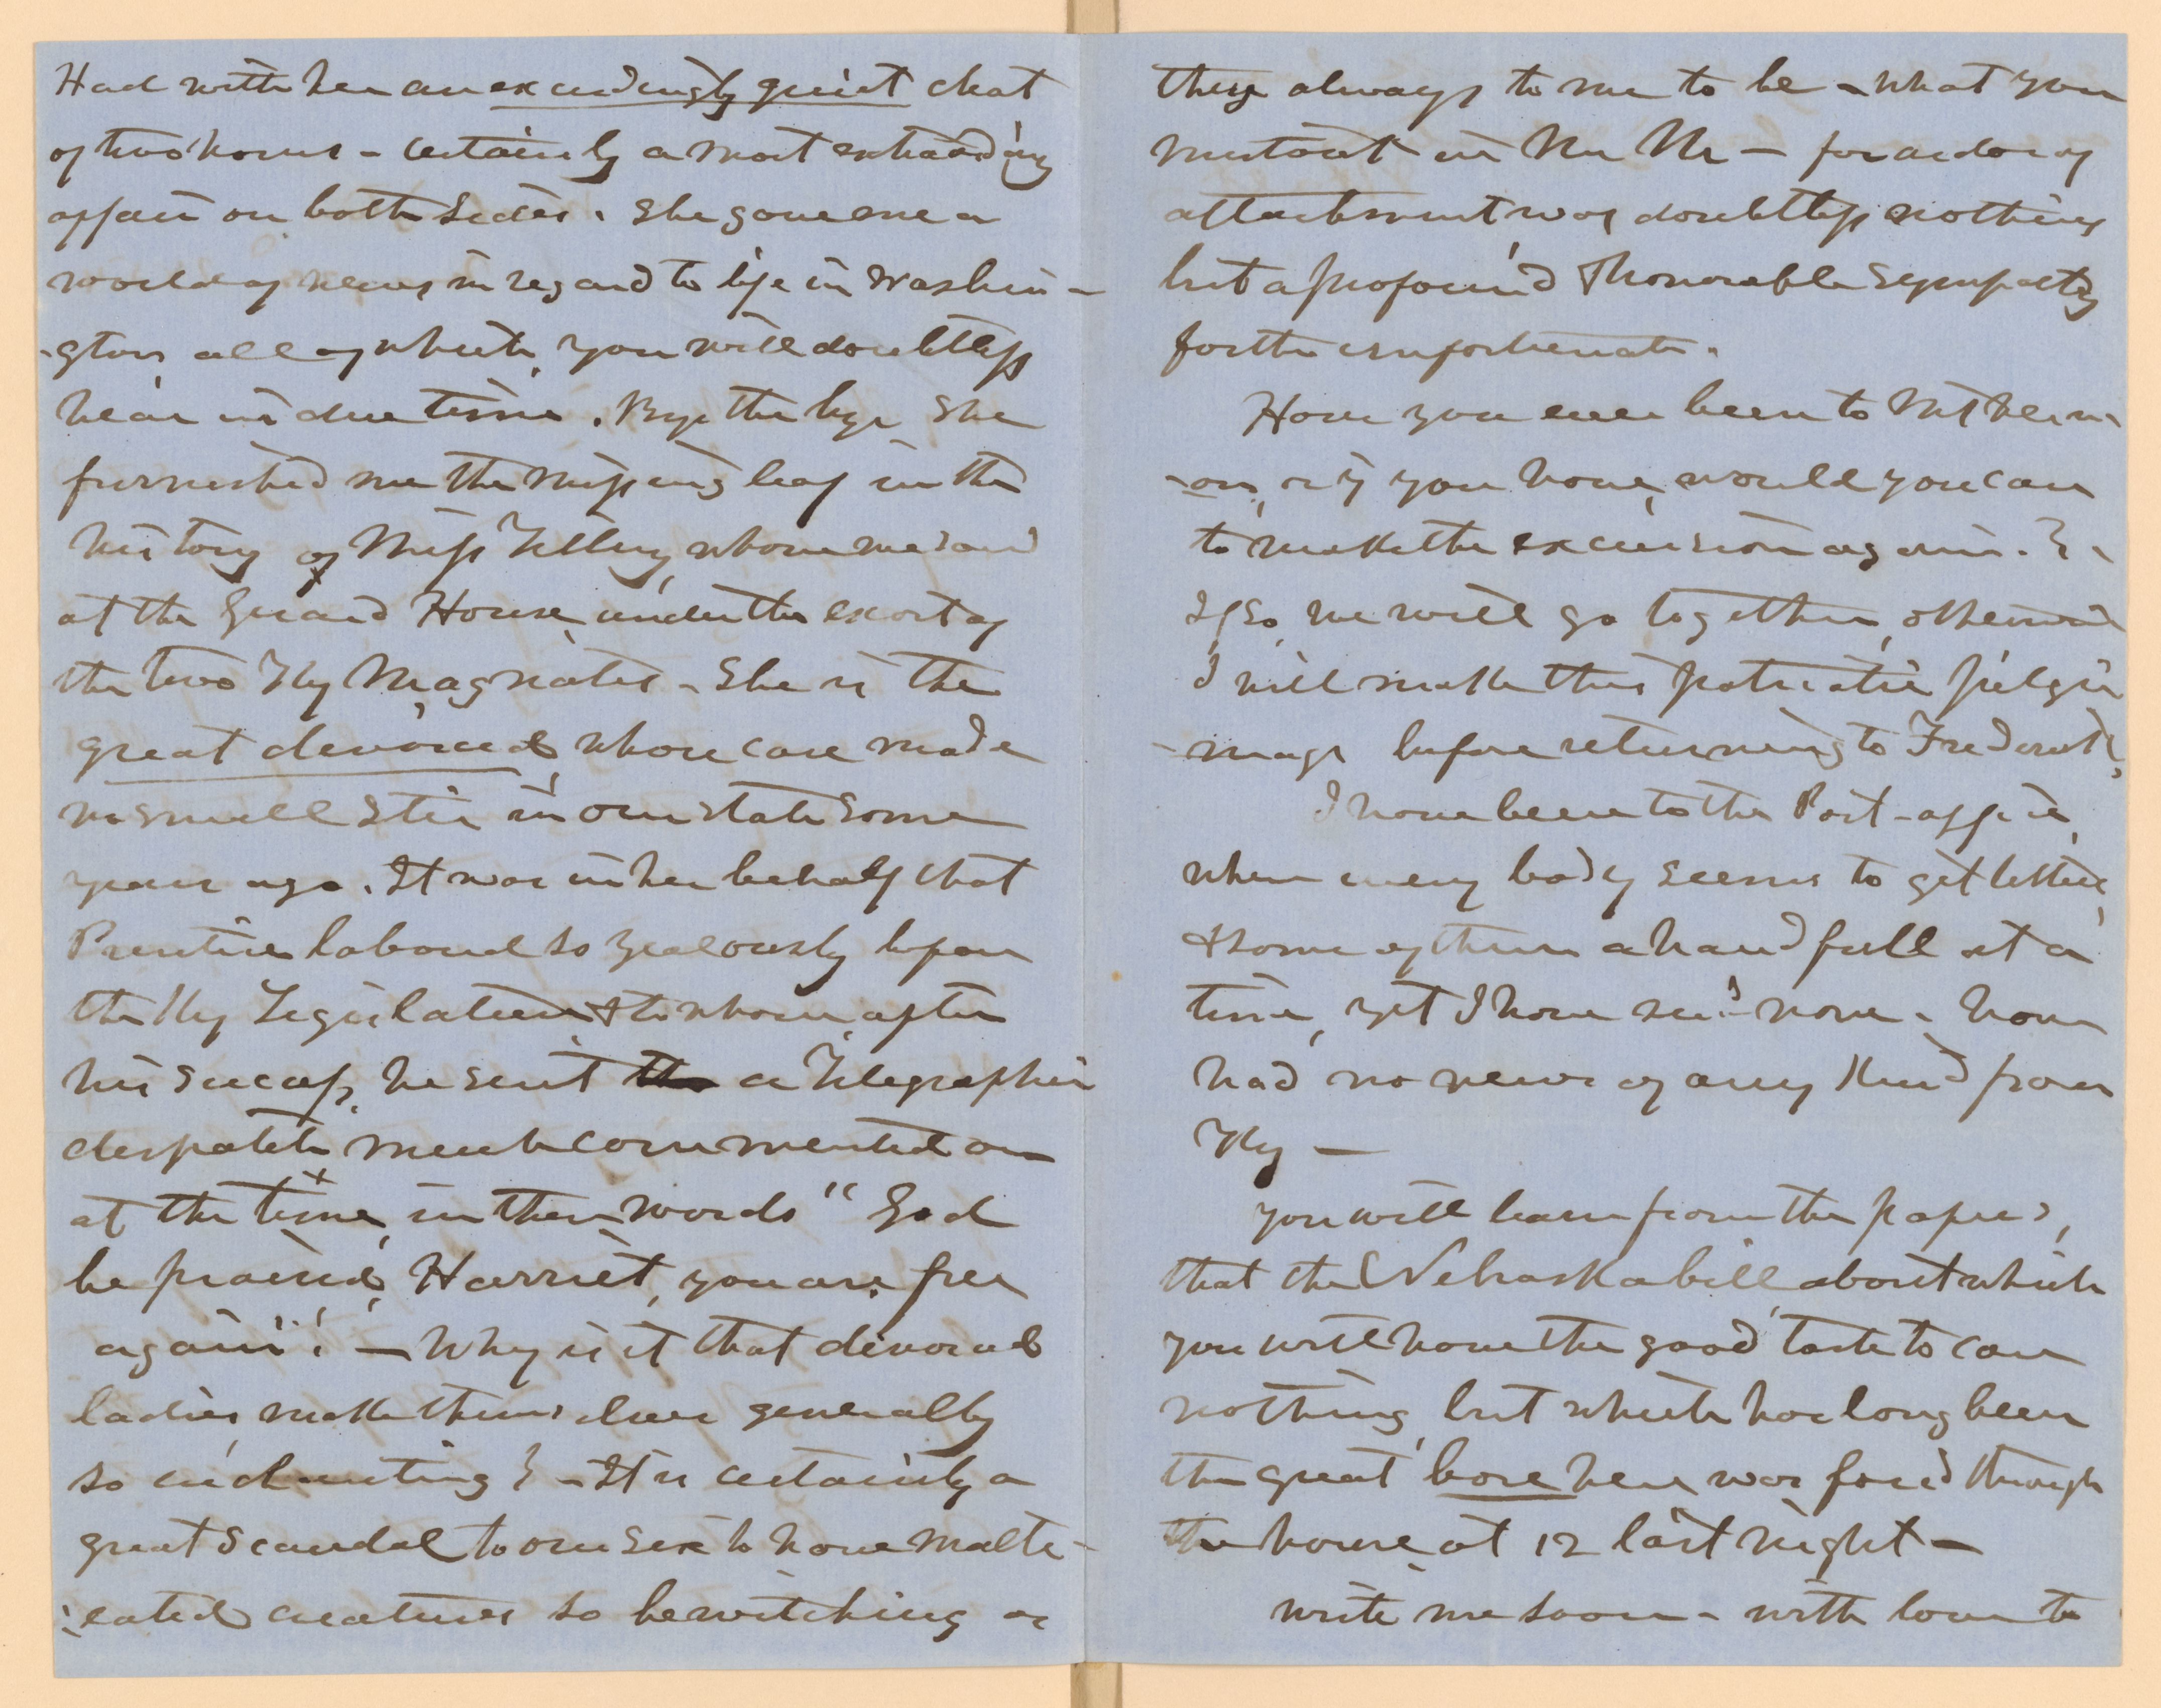 Had with her an exceedingly quiet chat
of two hours - certainly a most extraord'ing
affair on both sides. She gave me a
world of news in regard to life in Washin-
-gton, all of which, you will doubtless
hear in due time. Bye the bye she
furnished me the missing leaf in the
history of Miss whom we saw
at the Guard House, under the escort of
the two Ky Magnates - She is the
great divorced, whose case made
no small stir in our state some
years ago. It was in her behalf that
Prentice labored so zealously upon
the Ky Legislature & to whom, after
his success, he sent a Telegraphic
despatch much commented on
at the time, in these words "God
be praised, Harriet, you are free
again"! - Why is it that divorced
ladies, make themselves generally
so enchanting? - It is certainly a
great scandal to our sex to have
creatures so bewitching as
they always to me to be - what you
in Mr - for ardor of
attachment was doubtless nothing
but a profound & honorable sympathy
for the unfortunate.
Have you ever been to Mt Vern-
-on, or if you have, would you care
to make the excursion again?
If so, we will go together, otherwise
I will make this patriotic pilgri
-mage before returning to Fred
I have been to the Post-office,
where every body seems to get letters,
& some of them a hand full at a
time, yet I have rec'd none - have
had no news of any Kind from
Ky -
You will learn from the papers,
that the Nebraska bill about which
you will have the good taste to care
nothing, but which has long been
the great bore here was forc'd through
the house at 12 last night -
write me soon - with love to